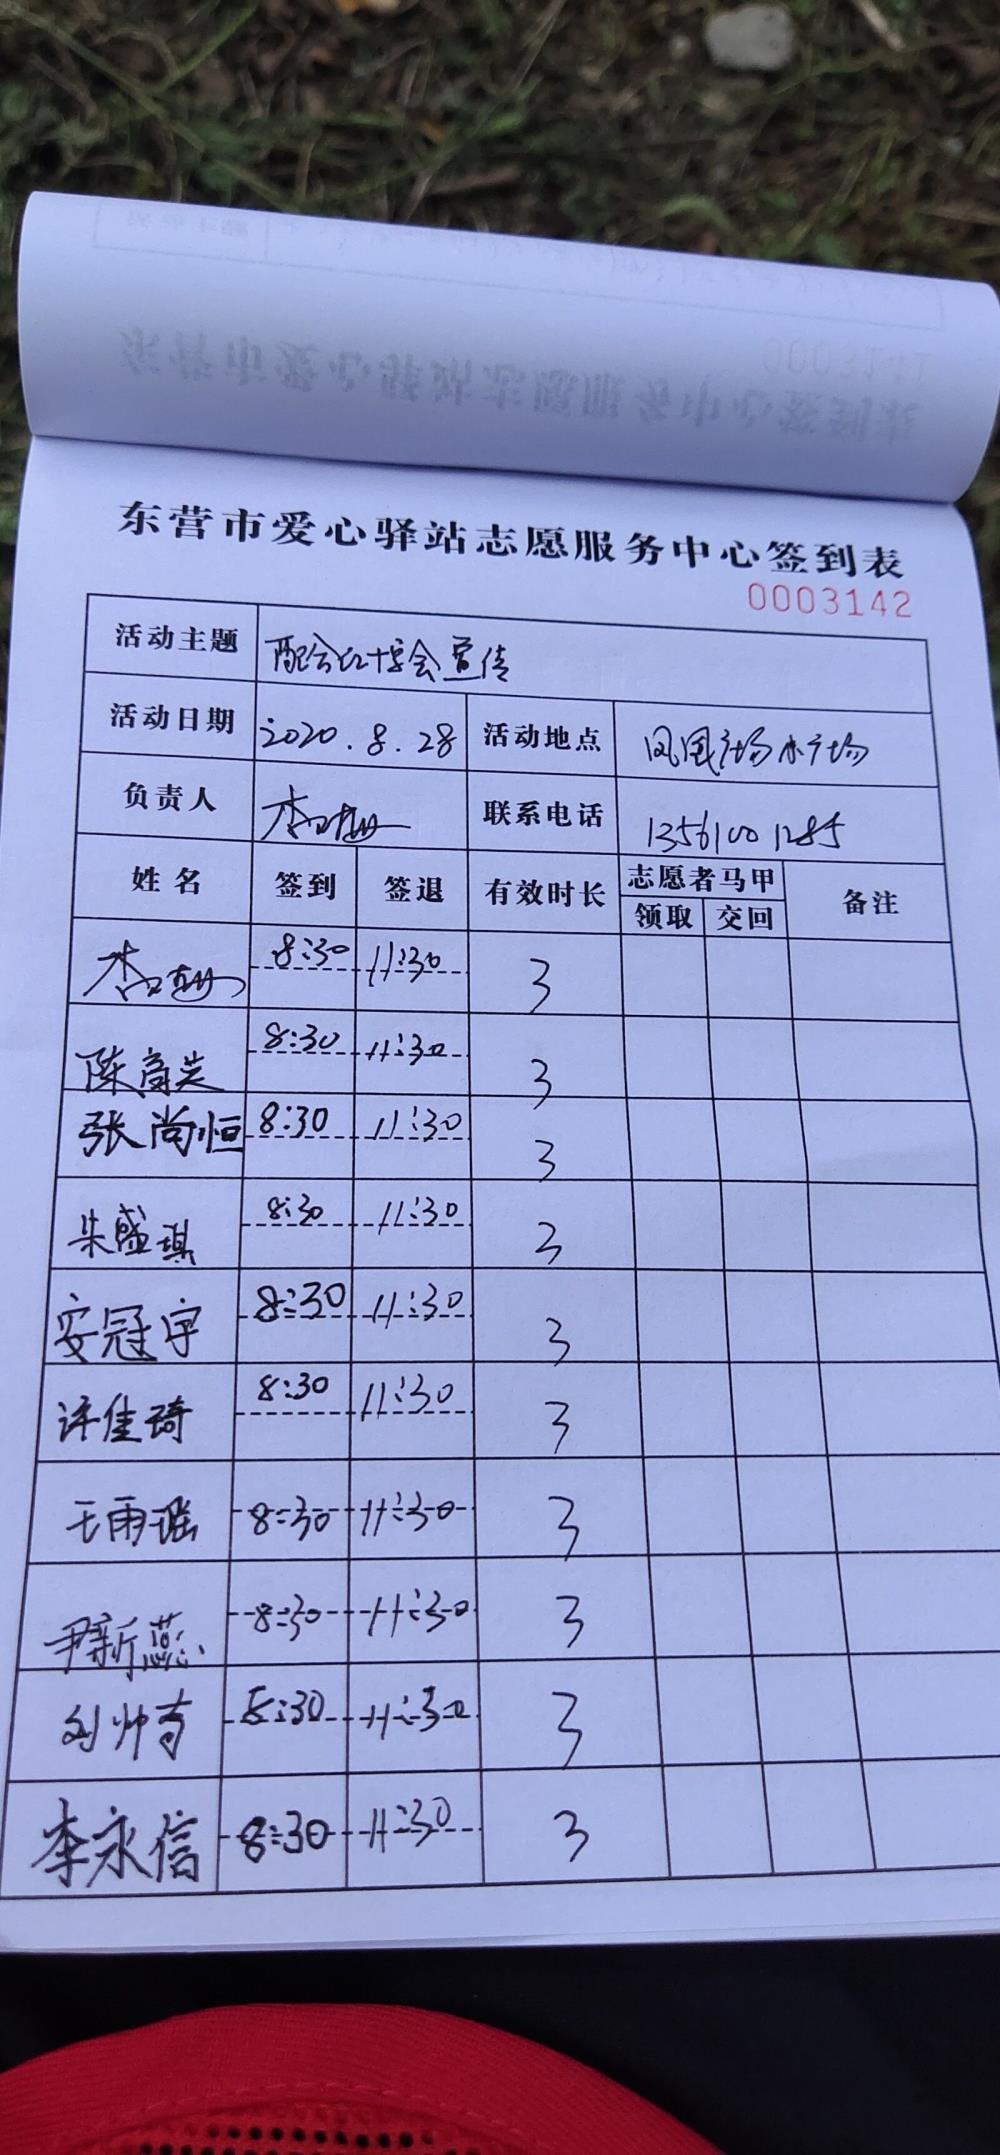 东营市爱心驿站志愿服务中心签到表
0003142
活动主题 配合红十字会宣传
活动日期 2020.8.28 活动地点 凤凰广场水广场
负责人 联系电话 13561001285
姓名 签到 签退 有效时长 志愿者马甲 备注
领取 交回
8:30 11:30 3
8:30 11:30 3
张尚恒 8:30 11:30 3
朱盛琪 8:30 11:30 3
安冠宇 8:30 11:30 3
许佳琦 8:30 11:30 3
王雨瑶 8:30 11:30 3
尹新蕊 8:30 11:30 3
刘帅奇 8:30 11:30 3
李永信 8:30 11:30 3